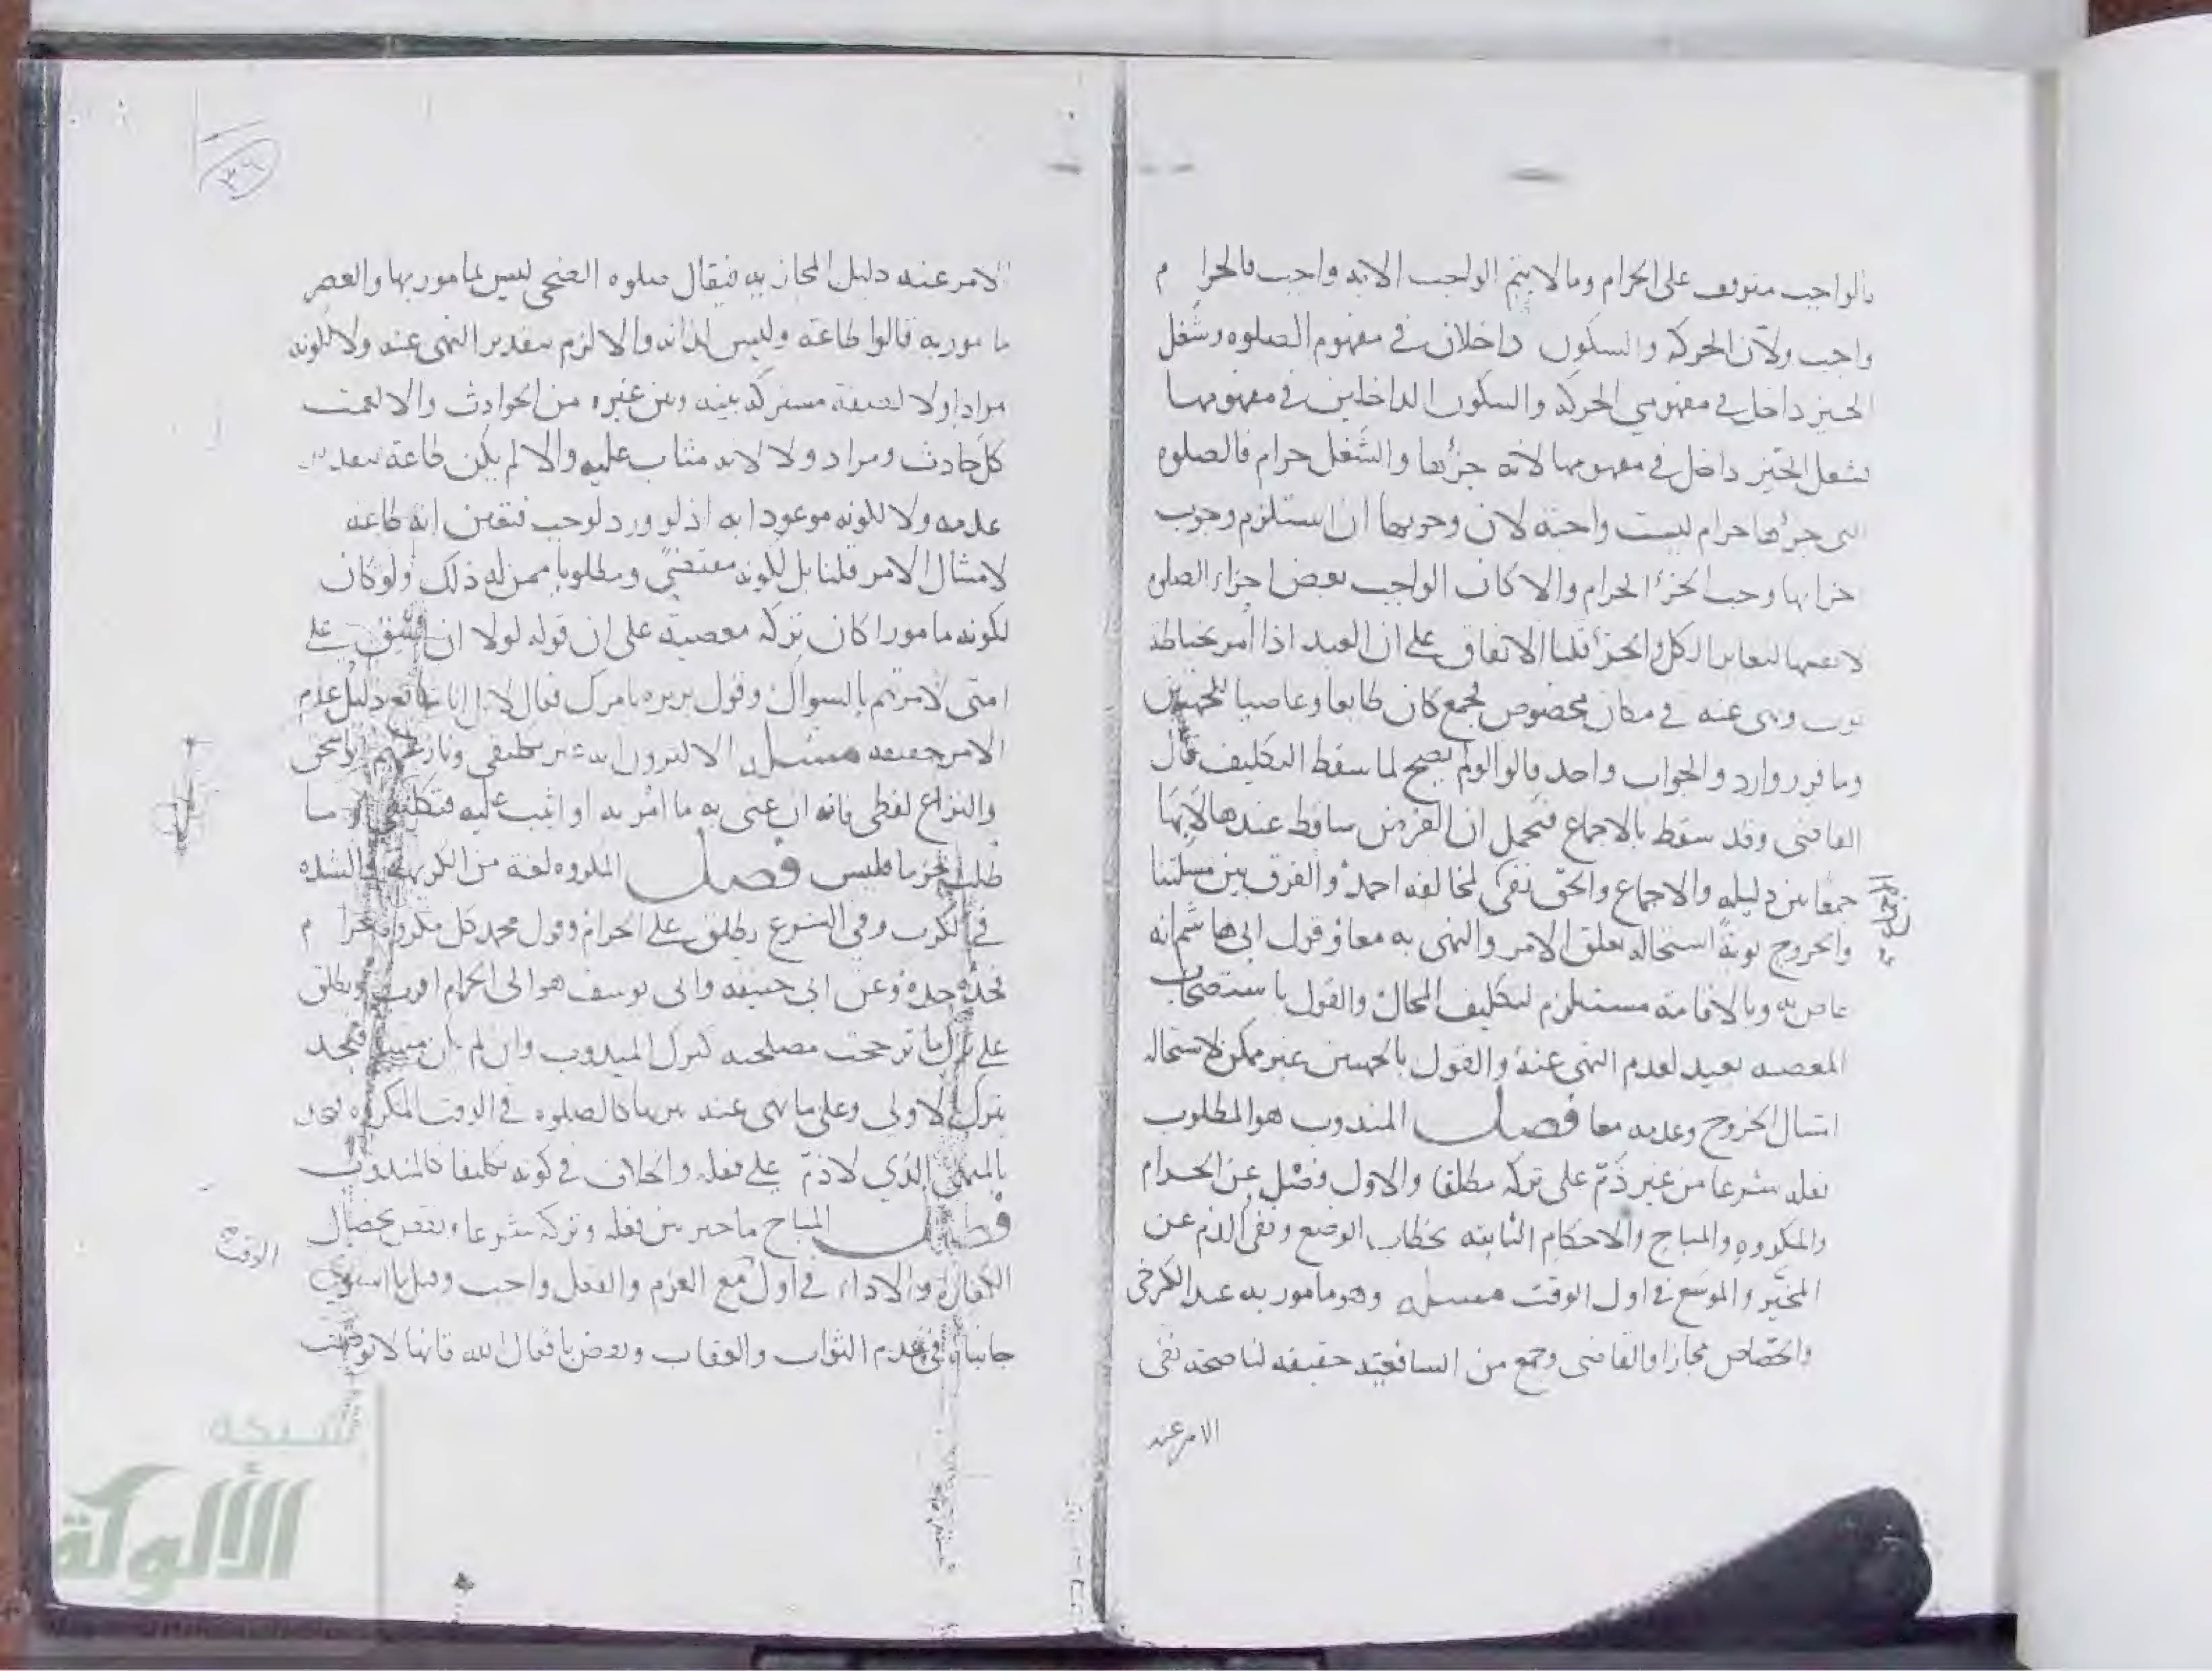 فالواجب متوقف على الحرام وما لا يتم الواجب الا به واجب فالحرام
واجب ولأن الحركه والسكون داخلان في مفهوم الصلوه وشغل
الحيز داخل في مفهومي الحركه والسكون الداخلين في مفهومها
فشغل الحيّز داخل في مفهومها لانه جزؤها والشَغل حرام فالصلوه
التى جزؤها حرام ليست واجبه لان وجوبها ان استلزم وجوب
اجزايها وجب الجزؤ الحرام والا كان الواجب بعض اجزاء الصلوه
لا نفسها لتغاير الكل والجزؤ قلنا الاتفاق على ان العبد اذا أمر بخياطة
ثوب ونهى عنه في مكان مخصوص فجمع كان طايعا وعاصيا للجهتين
وما قرر وارد والجواب واحد قالوا لو لم يصح لما سقط التكليف قال
القاضى وقد سقط بالاجماع فتحمل ان الفرض ساقط عندها لا بها
جمعًا بين دليله والاجماع والحق نفى لمخالفه احمد والفرق بين مسئلتنا
والخروج توبةً استحاله تعلق الامر والنهى به معًا وقول ابى هاشم انه
عاص به وبالاقامة مستلزم لتكليف المحال والقول باستصحاب
المعصيه بعيد لعدم النهى عنه والقول بالجهتين غير ممكن لاستحاله
امتثال الخروج وعدمه معا فصل المندوب هو المطلوب
فعله شرعا من غير ذمّ على تركه مطلقا والاول فصْل عن الحرام
والمكروه والمباح والاحكام الثابته بخطاب الوضع ونفى الذم عن
المخيّر والموسّع في اول الوقت مسئله وهو مامور به عند الكرخى
والجصّاص مجازا والقاضى وجمع من الشافعيّه حقيقه لنا صحه نفى
الامر عنه
الامر عنه دليل المجازيه فيقال صلوه الضحى ليس مامور بها والعصر
مامور به قالوا طاعة وليس لذاته والا لزم بتقدير النهى عنه ولا لكونه
مرادا ولا لصفة مشتركه بينه وبين غيره من الحوادث والا لعمت
كل حادث ومراد ولا لانه مثاب عليه والا لم يكن طاعة بتقدير
عدمه ولا لكونه موعودا به اذ لو ورد لوجب فتعين انه طاعة
لامتثال الامر قلنا بل لكونه مقتضيً ومطلوبا ممن له ذلك ولو كان
لكونه مامورا كان تركه معصية على ان قوله لولا ان اشق على
امتى لأمرتهم بالسواك وقول بريره بامرك فقال لا انما انا شافع دليل عدم
الامر حقيقه مسئله الاكثرون انه غير تكليفى ونازعهم
والنزاع لفظى فانه ان عنى به ما امر به او اثيب عليه فتكليف
طلب بجزما فليس فصل المكروه لغة من الكريهه والشده
في الحرب وفي الشرع يطلق على الحرام وقول محمد كل مكروه حرام
فحدّه حده وعن ابى حنيفه وابى يوسف هو الى الحرام اقرب ويطلق
على ترك ما ترجحت مصلحته كترك المندوب وان لم يكن فيحد
بترك الاولى وعلى ما نهى عنه تنزيها كالصلوه في الوقت المكروه فيحد
بالمنهى الذي لا ذمّ على فعله والخلاف في كونه تكليفا كالمندوب
فصل المباح ما خير بين فعله وتركه شرعا ونقض بخصال
الكفاره والاداء في اول مع العزم والفعل واجب وقيل ما استوى
جانباه في عدم الثواب والعقاب ونقض بافعال الله فانها لا توصف
الوقت
٣٦
شبكة
الألوكة